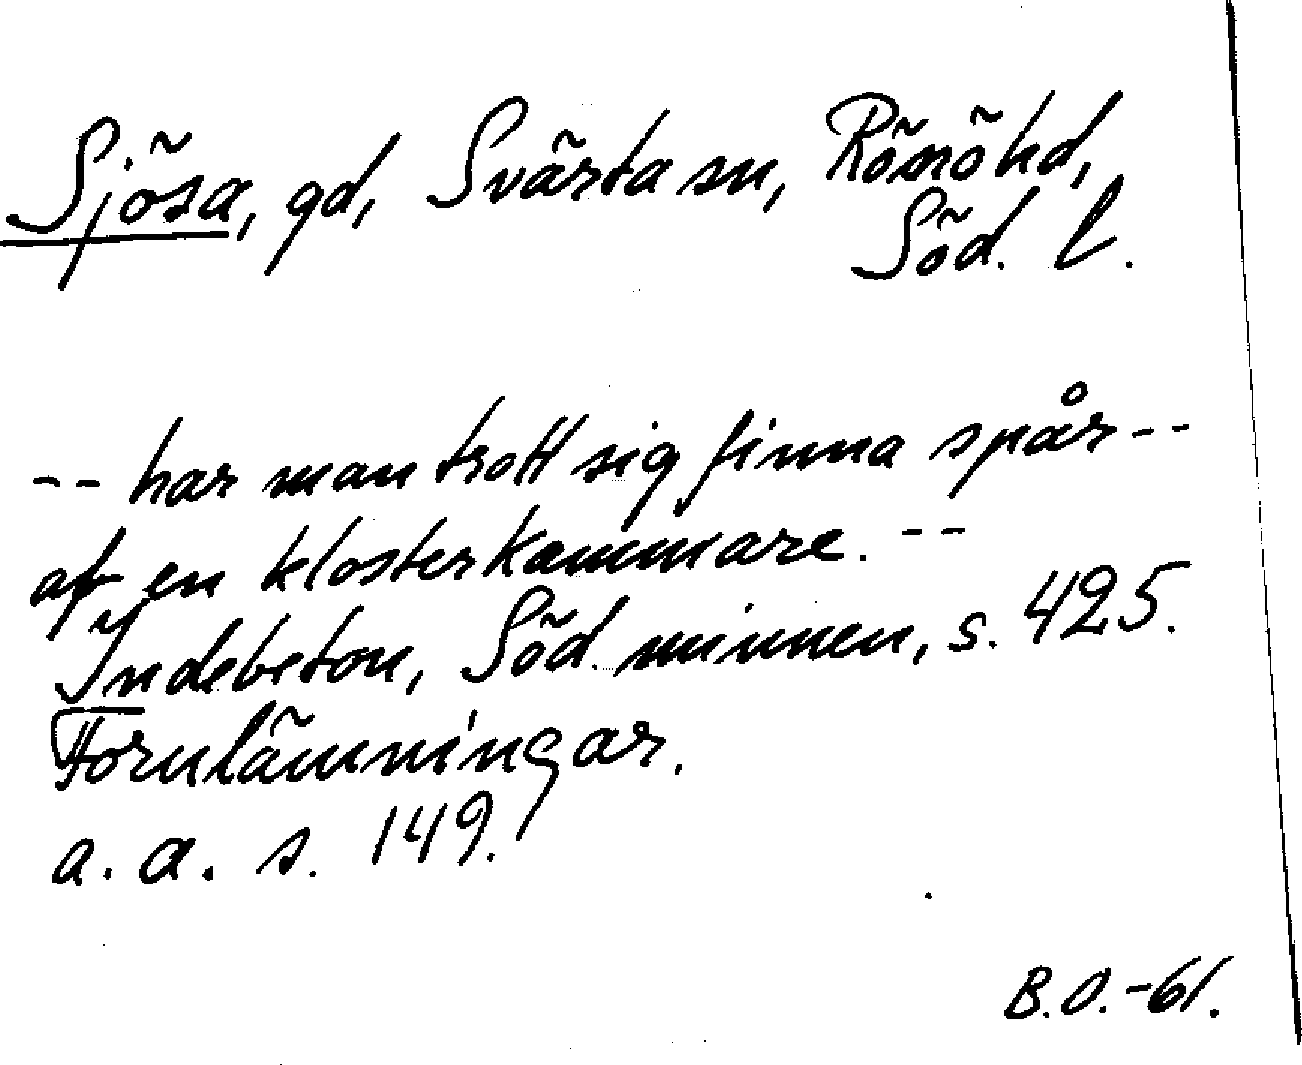 Sjösa, gd, Svärta sn, Rönö hd,
Söd. l.
-- har man trott sig finna spår --
af en klosterkammare. --
Indebetou, Söd. minnen, s. 425.
Fornlämningar.
a. a. s. 149.
B.O.-61.